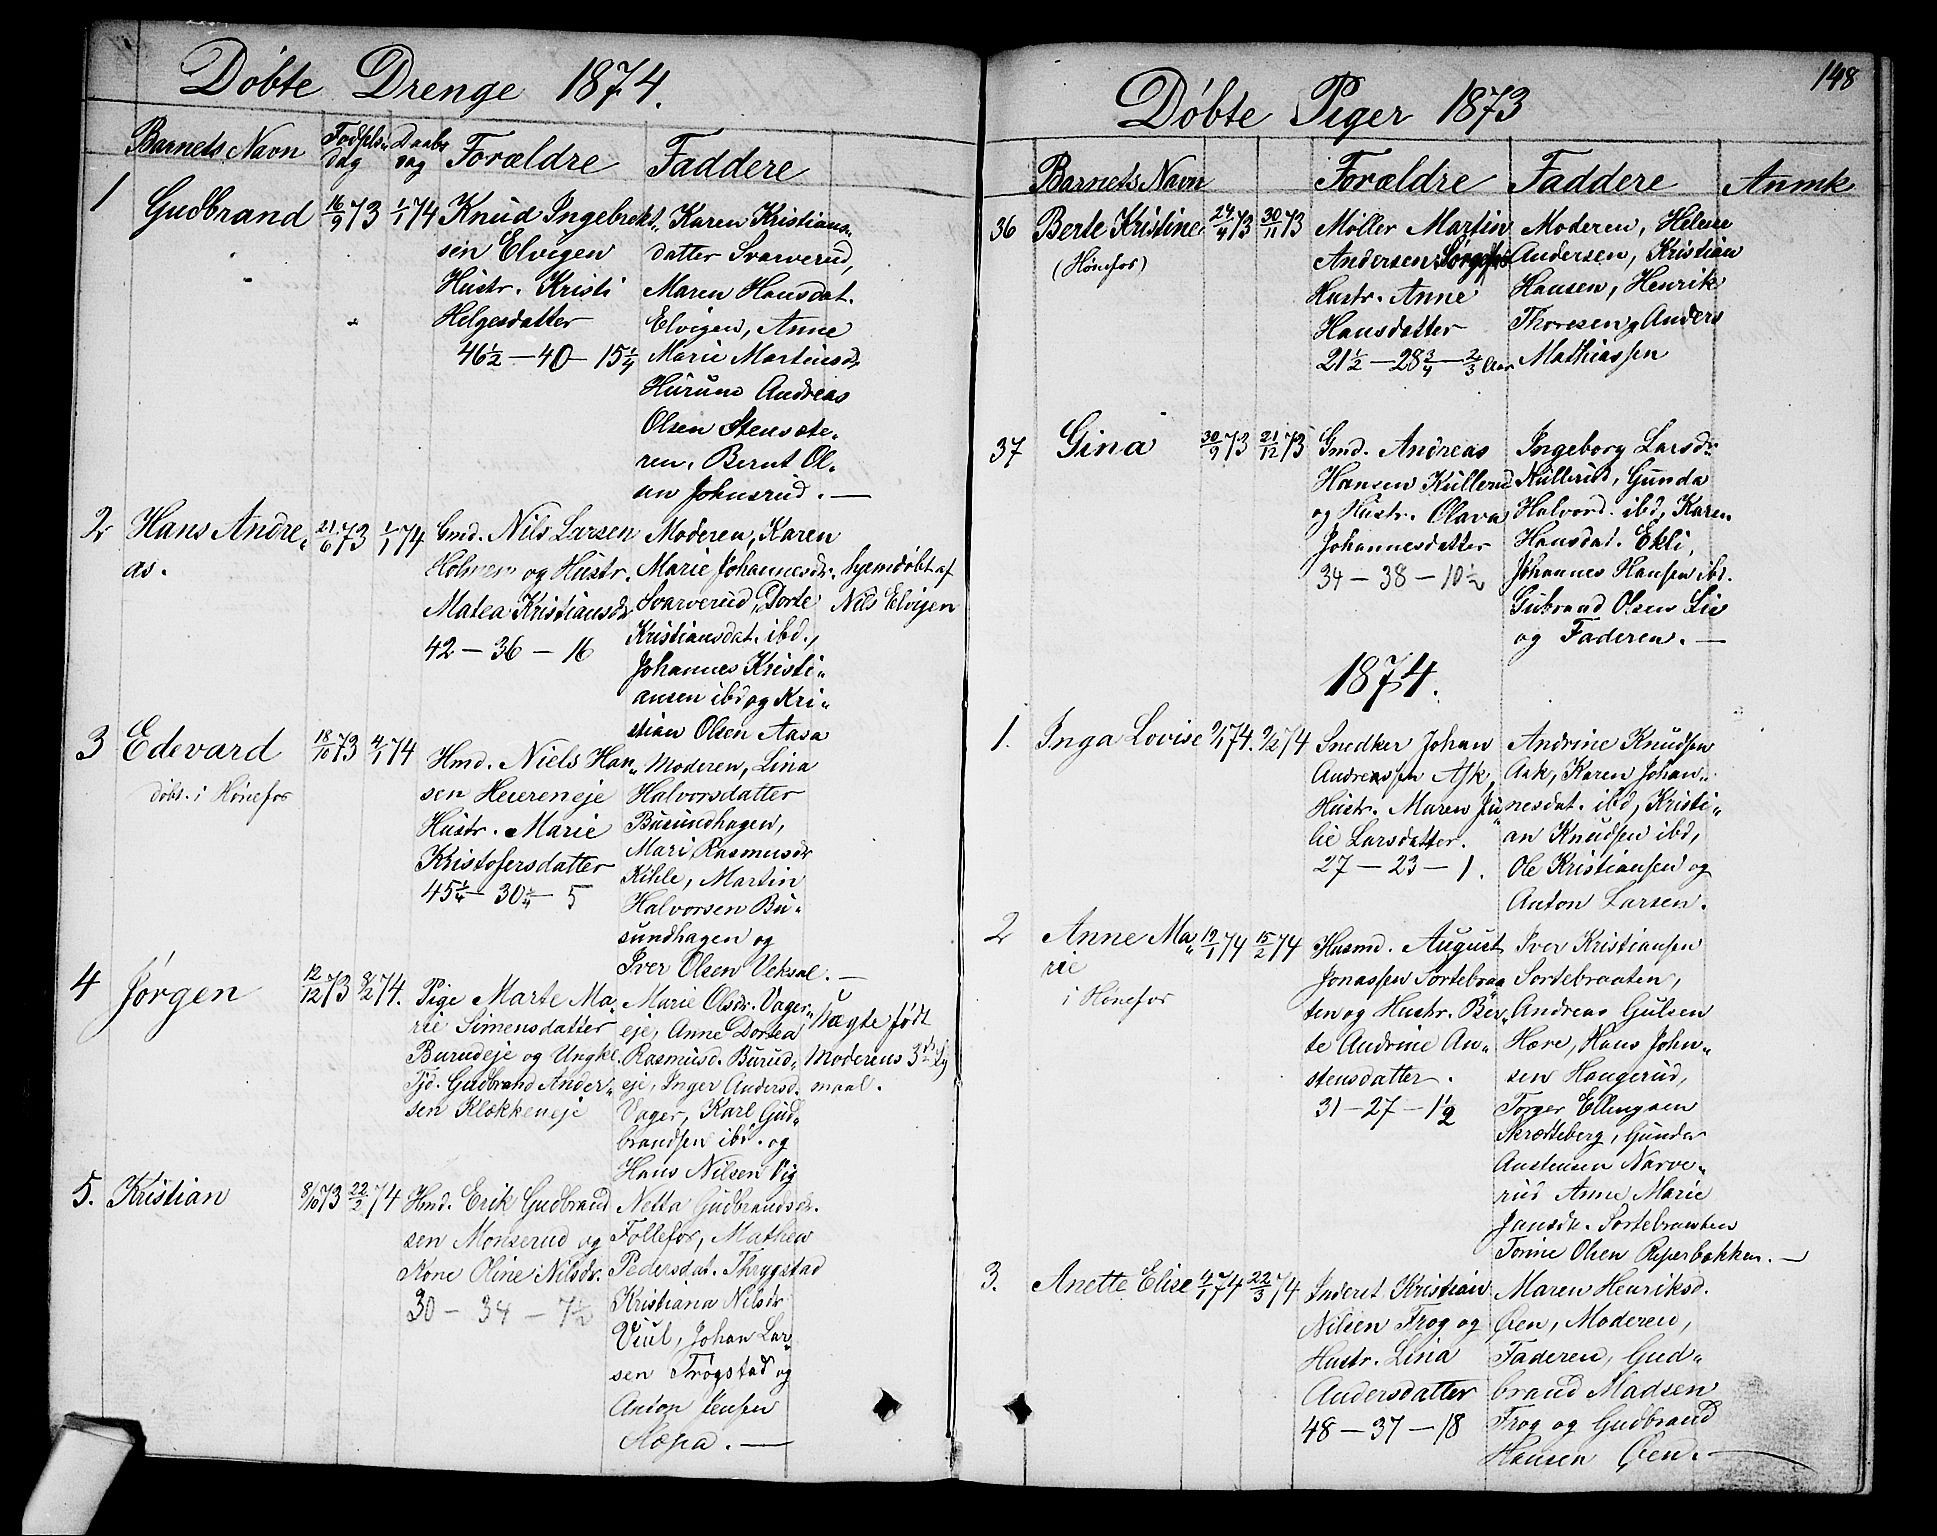 Døbte Drenge 1874.
Barnets Navn Fødsels- dag Daabs dag Forældre Faddere
1 Gudbrand 16/9 73 1/1 74
Knud Ingebrekt-
sen Elvigen
Hustr. Kristi
Helgesdatter
46 1/2 — 40 — 15 1/4
Karen Kristians-
datter Svarverud,
Maren Hansdat.
Elvigen, Anne
Marie Martinsdr.
Hurum Andreas
Olsen Stensæte-
ren, Bernt Ol-
sen Johnsrud. —
2 Hans Andre-
as.
21/6 73 1/1 74
Gmd. Nils Larsen
Holmen og Hustr.
Matea Kristiansdr
42 — 36 — 16
Moderen, Karen
Marie Johannesdr.
Svarverud, Dorte
Kristiansdat. ibd.,
Johannes Kristi-
ansen ibd og Kri-
stian Olsen Aasa
hjemdøbt af
Nils Elvigen
3 Edevard
døbt i Hønefos
18/10 73 4/1 74
Hmd. Niels Han-
sen Heereneje
Hustr. Marie
Kristofersdatter
45 1/4 — 30 1/4 — 5
Moderen, Lina
Halvorsdatter
Busundhagen,
Mari Rasmusdr
Kihle, Martin
Halvorsen Bu-
sundhagen og
Iver Olsen Veksal. —
4 Jørgen 12/12 73 8/2 74.
Pige Marte Ma-
rie Simensdatter
Burudeje og Ungkl.
Tjd. Gudbrand Ander-
sen Klækkeneje
Marie Olsdr. Vager-
eje, Anne Dortea
Rasmusd. Burud-
eje, Inger Andersd.
Vager, Karl Gud-
brandsen ibd. og
Hans Nilsen Vig
Uægte født
Moderens 3die Lej
maal.
5. Kristian 8/10 73 22/2 74
Hmd. Erik Gudbrand
sen Monserud og
Kone Oline Nilsdr.
30 — 34 — 7 1/2
Netta Gudbrandsdr.
Follefos, Mathea
Pedersdat. Thrygstad
Kristiana Nilsdr
Viul, Johan Lar-
sen Trøgstad og
Anton Jensen
Aasa. —
148
Døbte Piger 1873
Barnets Navn Forældre Faddere Anmk
36 Berte Kristine
(Hønefos)
24/4 73 30/11 73
Møller Martin
Andersen
Hustr. Anne
Hansdatter
21 1/2 — 28 3/4 — 2/3 Aar
Moderen, Helene
Andersen, Kristian
Hansen, Henrik
Thoresen og Anders
Mathiassen
37 Gina 30/9 73 21/12 73
Gmd. Andreas
Hansen Kullerud
og Hustr. Olava
Johannesdatter
34 — 38 — 10 1/2
Ingeborg Larsdr.
Kullerud, Gunda
Halvord. ibd, Karen
Hansdat. Ekli,
Johannes Hansen ibd.
Gubrand Olsen Lie
og Faderen. —
1874.
1. Inga Lovise 9/1 74. 9/2 74
Snedker Johan
Andreassen Ask,
Hustr. Maren Ju-
lie Larsdatter.
27 — 23 — 1.
Andrine Knudsen
Ask, Karen Johan-
nesdat. ibd, Kristi-
an Knudsen ibd,
Ole Kristiansen og
Anton Larsen.
2 Anne Ma-
rie
i Hønefos
19/1 74 15/2 74
Husmd. August
Jonassen Sortebraa-
ten og Hustr. Ber-
te Andrine An-
stensdatter.
31 — 27 — 1 1/2
Iver Kristiansen
Sortebraaten,
Andreas Gulsen
Hære, Hans John-
sen Haugerud,
Torger Ellingsen
Skrætteberg, Gunder
Anstensen Narve-
rud Anne Marie
Jansdr. Sortebraaten
Tonine Olsen Reperbakken. —
3. Anette Elise 4/1 74 22/3 74
Inderst Kristian
Nilsen Frog og
Hustr. Lina
Andersdatter
48 — 37 — 18
Maren Henriksd.
Øen, Moderen,
Faderen, Gud-
brand Madsen
Frog og Gudbrand
Hansen Øen. —